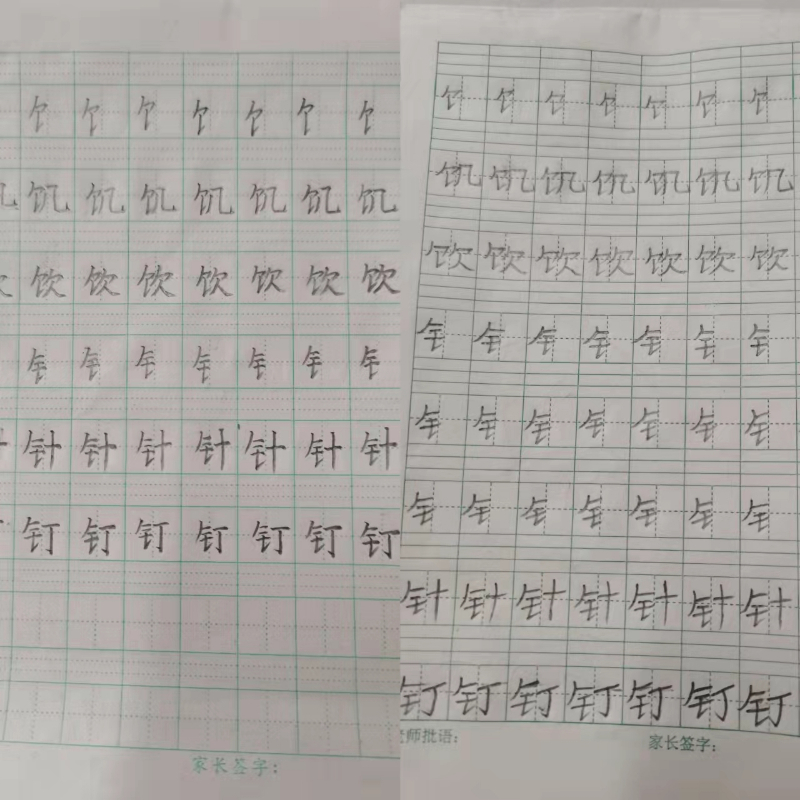 饣 饣 饣 饣 饣 饣 饣
饥 饥 饥 饥 饥 饥 饥
饮 饮 饮 饮 饮 饮 饮
钅 钅 钅 钅 钅 钅 钅
针 针 针 针 针 针 针
钉 钉 钉 钉 钉 钉 钉
家长签字:
饣 饣 饣 饣 饣 饣 饣
饥 饥 饥 饥 饥 饥 饥
饮 饮 饮 饮 饮 饮 饮
钅 钅 钅 钅 钅 钅 钅
钅 钅 钅 钅 钅 钅 钅
钅 钅 钅 钅 钅 钅 钅
针 针 针 针 针 针 针
钉 钉 钉 钉 钉 钉 钉
师批语: 家长签字: